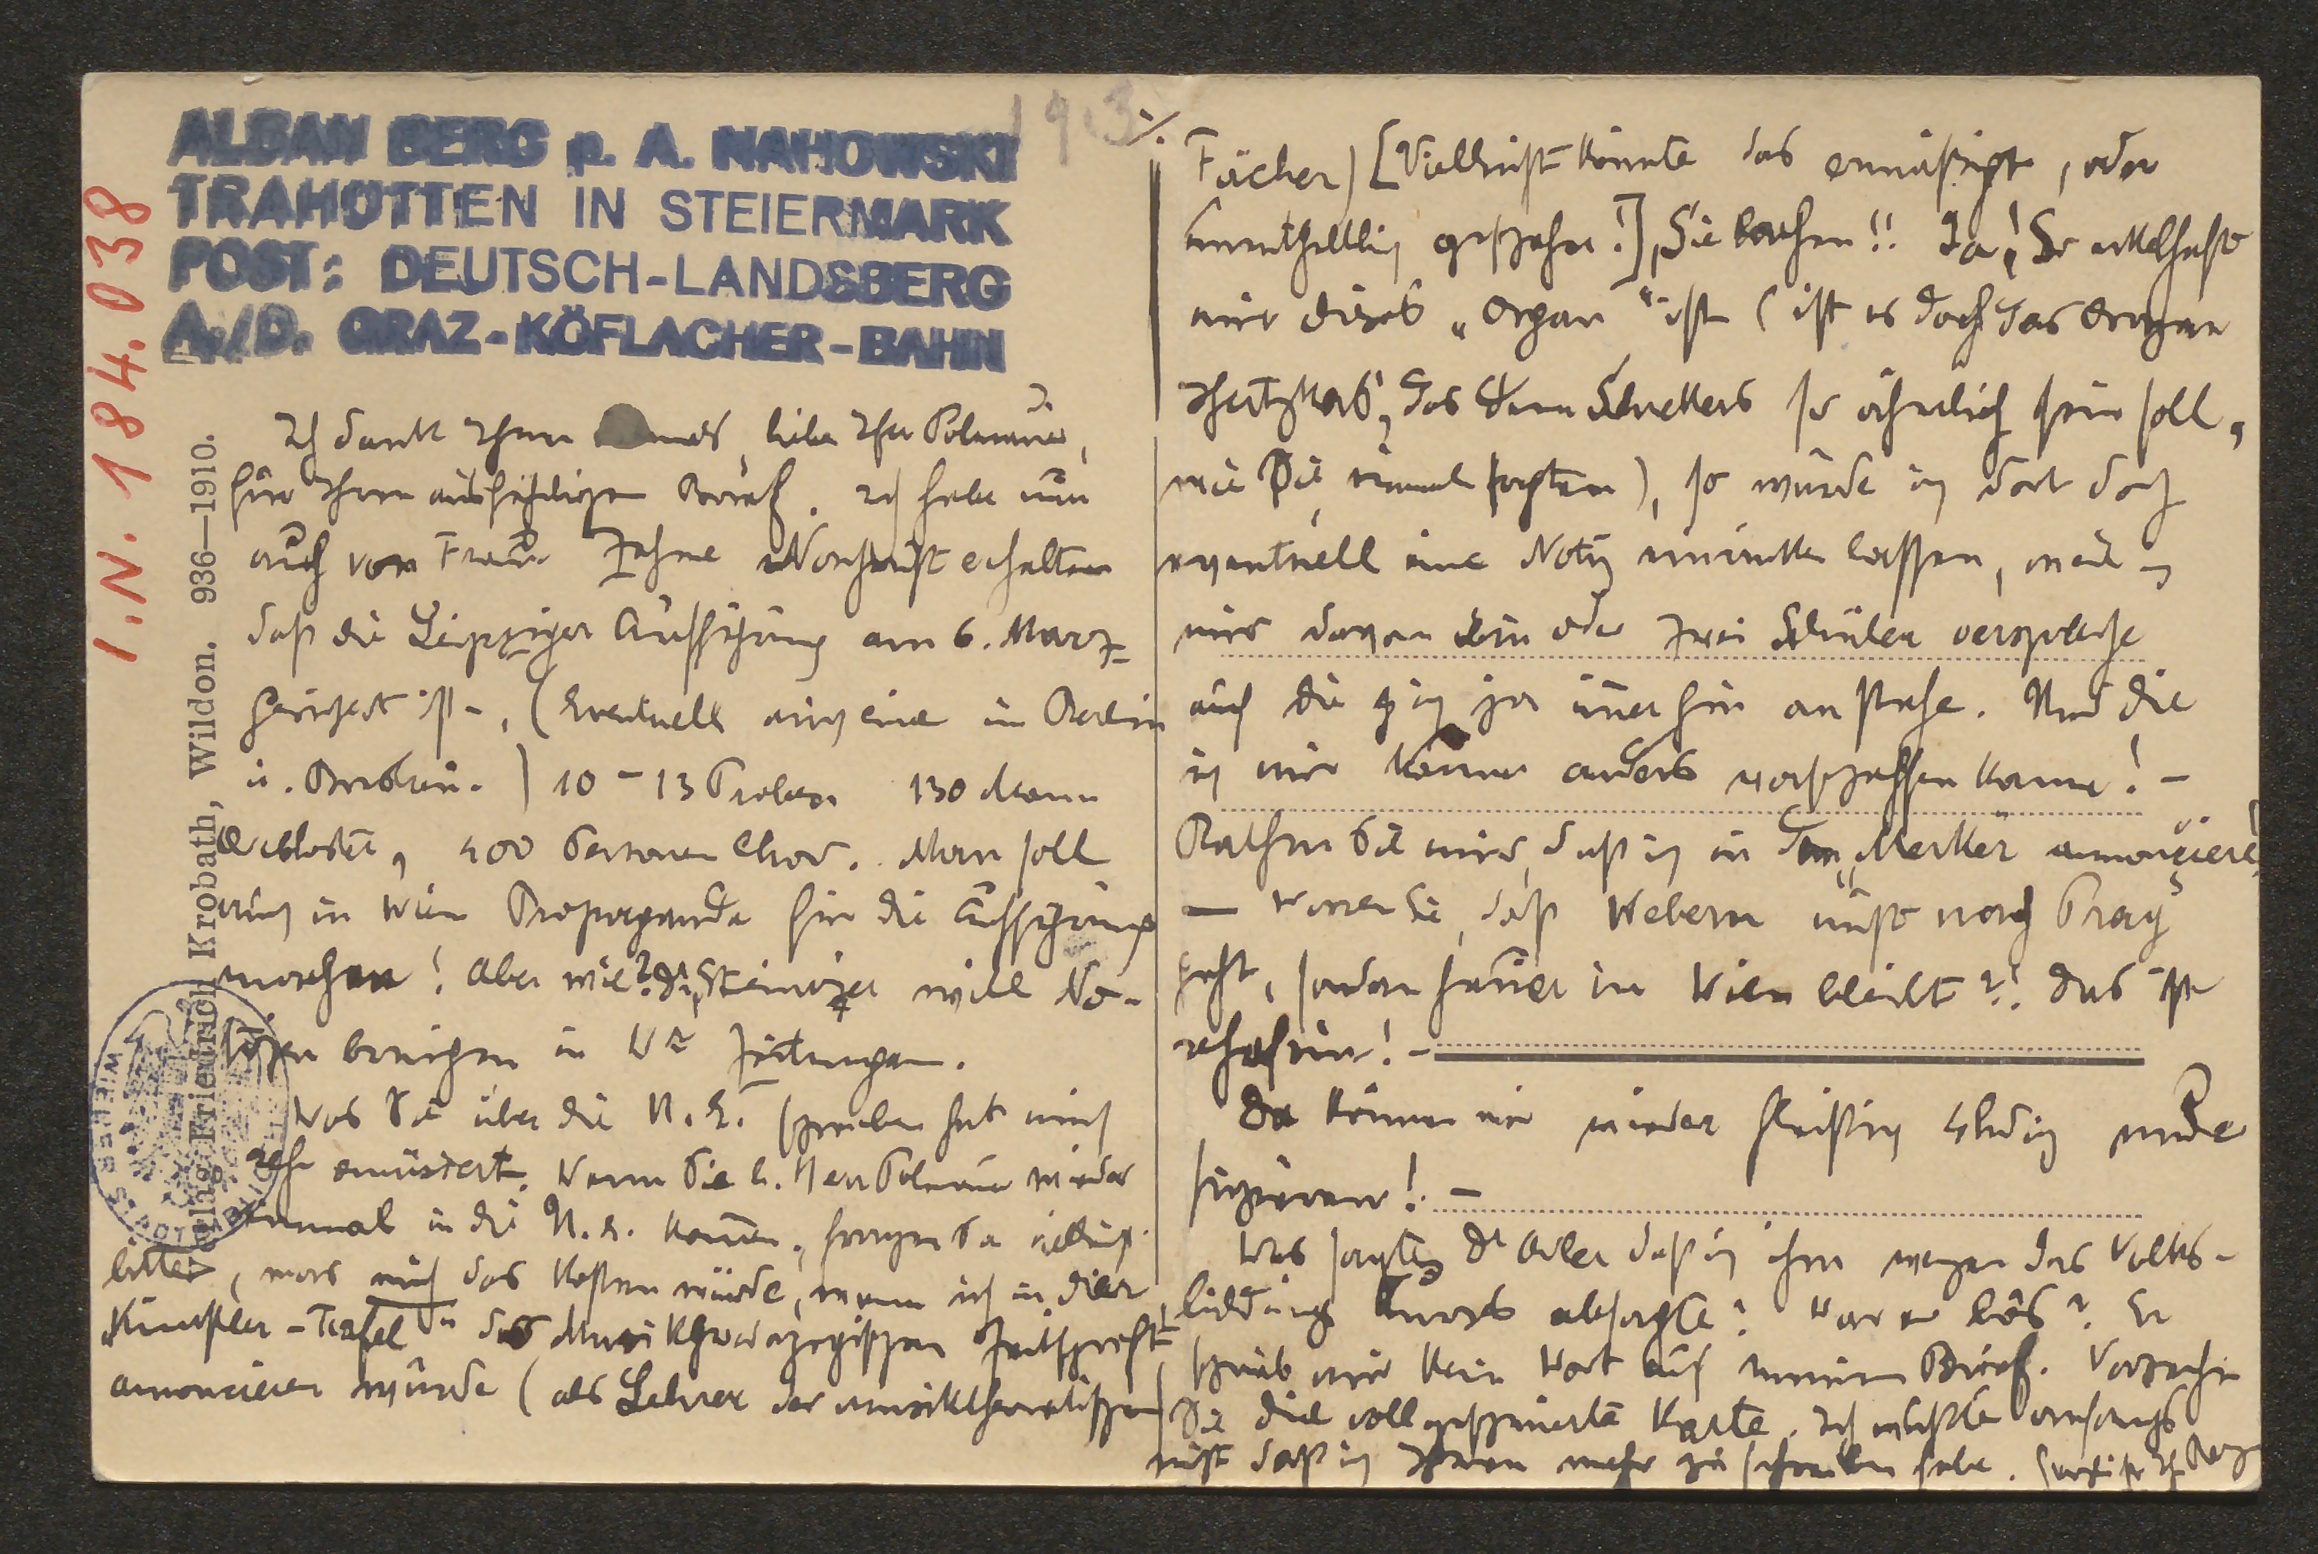 1913
ALBAN BERG p. A. NAHOWSKI
TRAHÜTTEN IN STEIERMARK
POST: DEUTSCH-LANDSBERG
A./D. GRAZ-KÖFLACHER-BAHN
I.N. 184.038
Verlag Friedrich Krobath, Wildon. 936—1910.
Ich danke Ihnen lieber Herr Polnauer,
für Ihren ausführlichen Brief. Ich habe nun
auch von Frau Nachricht erhalten
daß die Leipziger Aufführung am 6. März
fixiert ist, (Eventuell auch eine in Berlin
u. Dresden.) 10–13 Proben 130 Mann
Orchester, 400 Personen Chor. Man soll
auch in Wien Propaganda für die Aufführung
machen! Aber wie? Dr. Steininger will No-
tizen bringen in Zeitungen.
Was Sie über die U.E. schreiben hat mich
sehr amüsiert. Wenn Sie l. Herr Polnauer wieder
einmal in die U.E. kommen, fragen Sie
bitte, was mich das kosten würde, wenn ich in der
„Künstler-Tafel" der Musikpädagogischen Zeitschrift
annoncieren würde (als Lehrer der musiktheoretischen
./.
Fächer) [Vielleicht könnte das ermäßigt, oder
unentgeltlich geschehn!] Sie lachen!! Ja! So ekelhaft
mir dieses „Organ" ist (ist es doch das Organ
das dem Schrekers so ähnlich sein soll,
wie Sie einmal sagten), so würde ich dort doch
eventuell eine Notiz einrücken lassen, weil ich
mir davon ein oder zwei Schüler verspreche
auf die ich ja immerhin anstehe. Und die
ich mir kaum anders verschaffen kann! –
Rathen Sie mir, daß ich in dem „Merker" annonciere?
– Wissen Sie, daß Webern nicht nach Prag
geht, sondern heuer in Wien bleibt?! Das ist
fein! –
Da können wir wieder fleißig
! –
Was sagte Dr Adler daß ich ihm wegen des Volks-
bildungs Kurses absagte? War er bös? Er
schrieb mir kein Wort auf meinen Brief. Verzeihn
Sie die vollgeschmierte Karte. Ich wußte anfangs
nicht daß ich Ihnen mehr zu schreiben habe. Herzlichst Ihr Berg
WIENER STADTBIBLIOTHEK